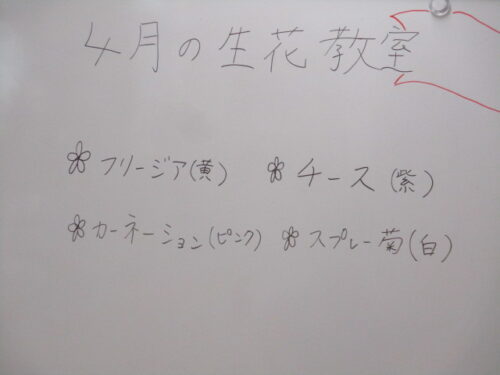 4月の生花教室
フリージア(黄) チース(紫)
カーネーション(ピンク) スプレー菊(白)